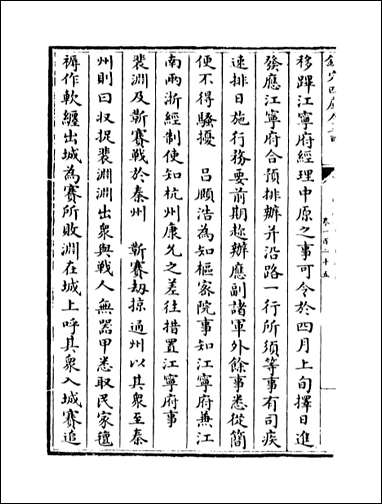 欽定四庫全書
卷一百二十五
移蹕江寧府經理中原之事可令於四月上旬擇日進
發應江寧府合預排辦并沿路一行所須等事有司疾
速排日施行務要前期趁辦應副諸軍外餘事悉從簡
便不得騷擾　吕頤浩為知樞家院事知江寧府兼江
南兩浙經制使知杭州康允之差往措置江寧府事
裴淵及靳賽戰於泰州　靳賽刼掠通州以其衆至泰
州則曰收捉裴淵淵出衆與戰人無器甲悉取民家氊
褥作軟纏出城為賽所敗淵在城上呼其衆入城賽追